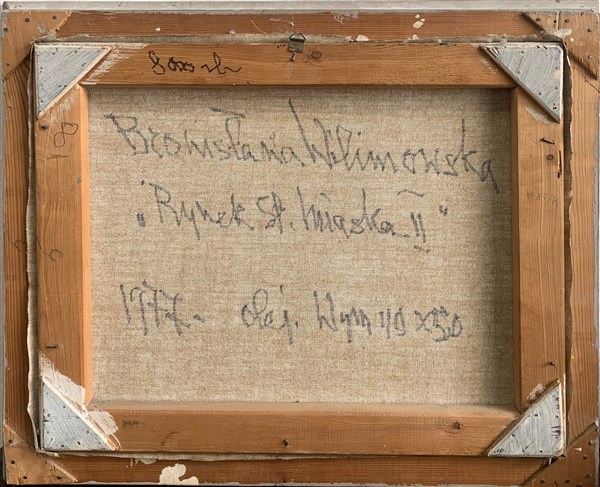 Bronisława Wilimowska
„Rynek St. Miasta II"
1977. olej. Wym 49 x 50
81